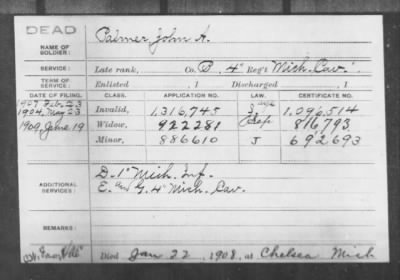 DEAD
NAME OF SOLDIER: Palmer, John A.
SERVICE: Late rank, Co. B, 4" Reg't Mich. Cav.
TERM OF SERVICE: Enlisted , 1 Discharged , 1
DATE OF FILING. CLASS. APPLICATION NO. LAW. CERTIFICATE NO.
1907 Feb. 23
1904, May 23 Invalid, 1,316,745 1,096,514
1909, June 19 Widow, 922281 816,793
Minor, 886610 J 692693
ADDITIONAL SERVICES: D. 1" Mich. Inf.
E. and G. 4" Mich. Cav.
REMARKS:
Died Jan 22, 1908, at Chelsea Mich